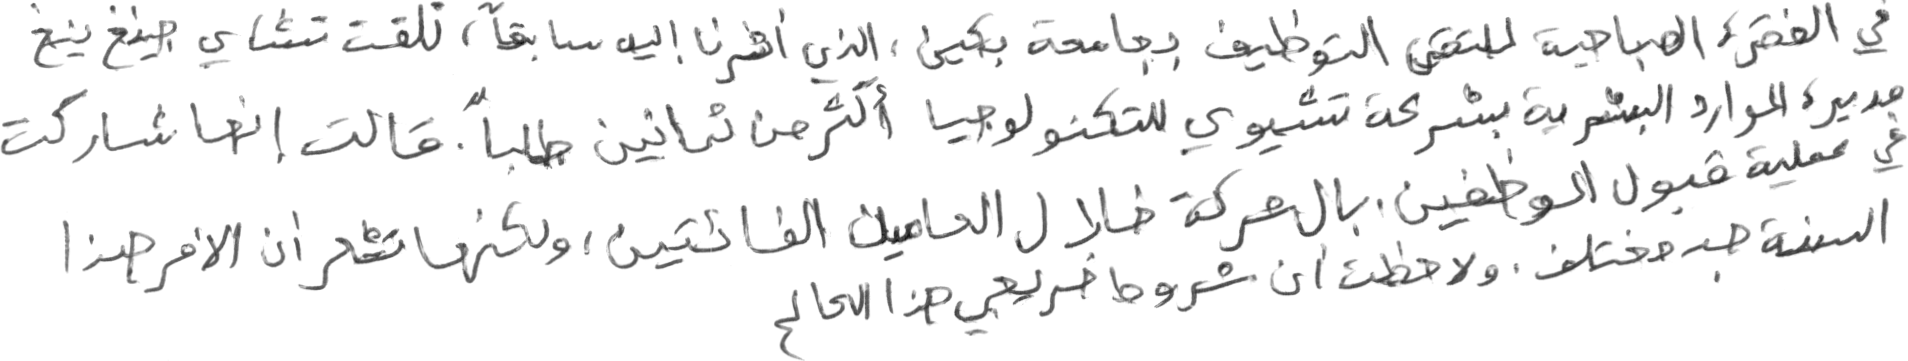 في الفقرة الصباحية لملتقى التوظيف بجامعة بكين، الذي أشرنا إليه سابقاً، تلقت تشاي جينغ ينغ
مديرة الموارد البشرية بشركة تشيوي للتكنولوجيا أكثر من ثمانين طلباً. قالت إنها شاركت
في عملية قبول الموظفين بالشركة خلال العامين الفائتين، ولكنها تشعر أن الأمر هذا
السنة جد مختلف. ولاحظت أن شروط خريجي هذا العالم